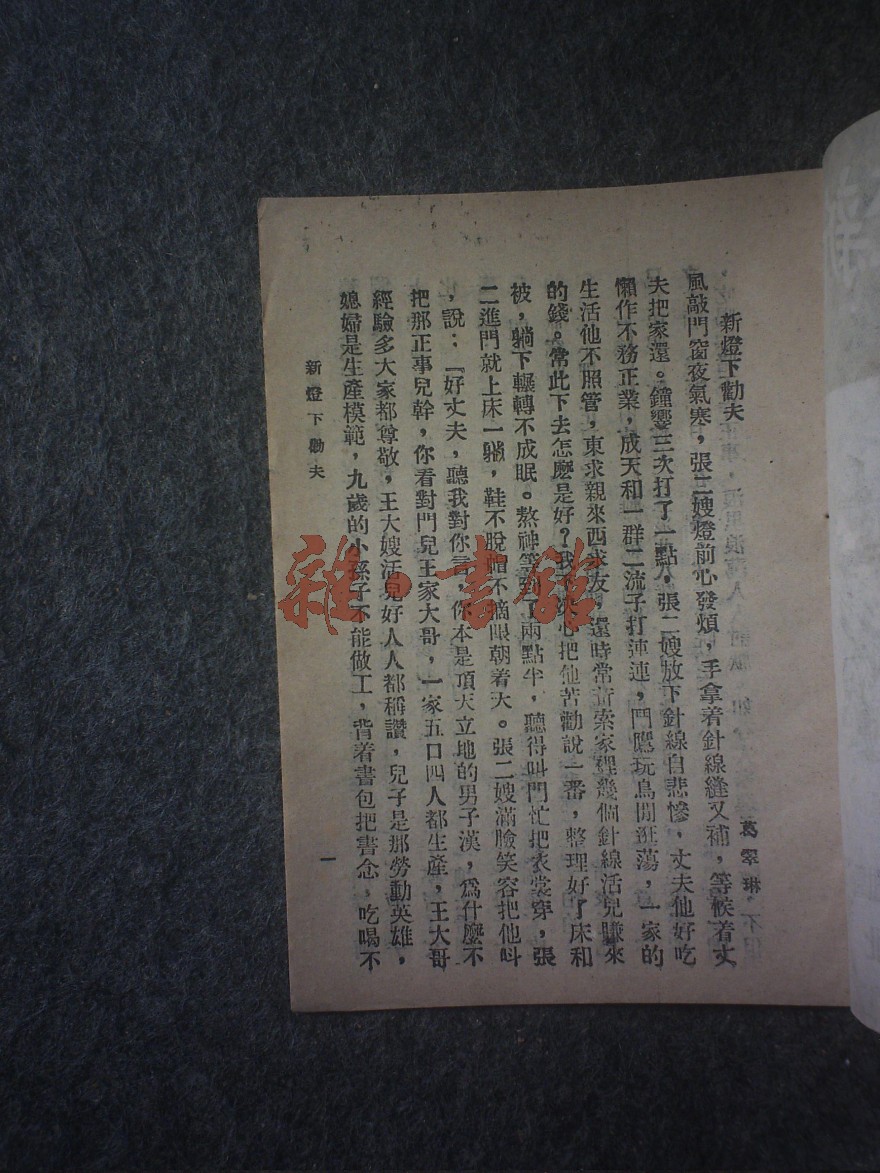 新燈下勸夫
葛翠琳
風敲門窗夜氣寒，張二嫂燈前心發煩，手拿着針線縫又補，等候着丈
夫把家還。鐘響三次打了一點，張二嫂放下針線自悲慘，丈夫他好吃
懶作不務正業，成天和一群二流子打連連，鬥鷹玩鳥閒逛蕩，一家的
生活他不照管，東求親來西求友，還時常苦索家裡幾個針線活兒賺來
的錢。常此下去怎麽是好？我 心把他苦勸說一番，整理好了床和
被，躺下輾轉不成眠。熬神等到了兩點半，聽得叫門忙把衣裳穿，張
二進門就上床一躺，鞋不脫帽不摘眼朝着天。張二嫂滿臉笑容把他叫
，說：『好丈夫，聽我對你言，你本是頂天立地的男子漢，爲什麽不
把那正事兒幹，你看對門兒王家大哥，一家五口四人都生產，王大哥
經驗多大家都尊敬，王大嫂活兒好人人都稱讚，兒子是那勞動英雄，
媳婦是生產模範，九歲的小孫子不能做工，背着書包把書念，吃喝不
新燈下勸夫
一
雜·書館